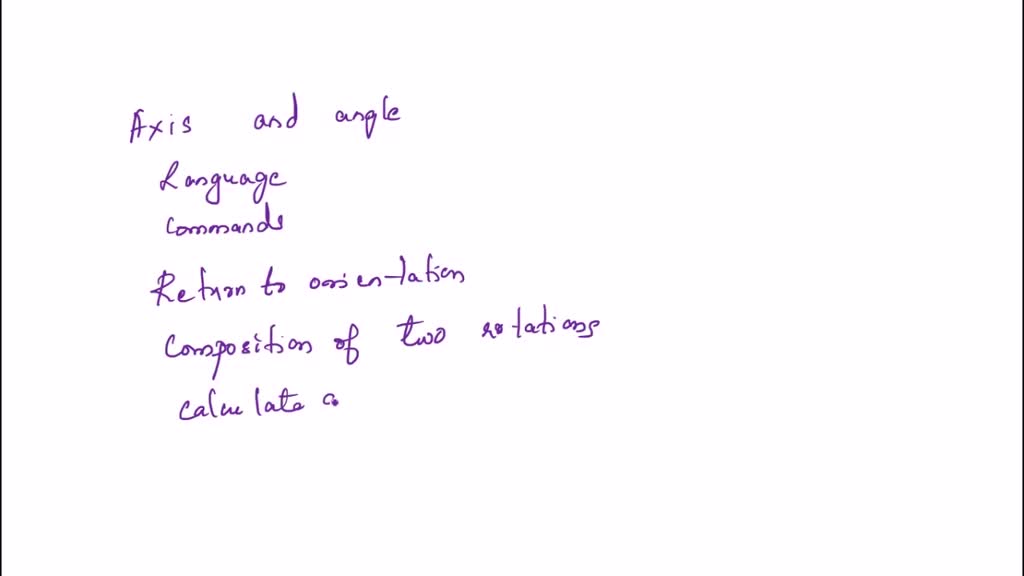 Axis and angle
Language
Commands
Return to orientation
Composition of two rotations
Calculate a